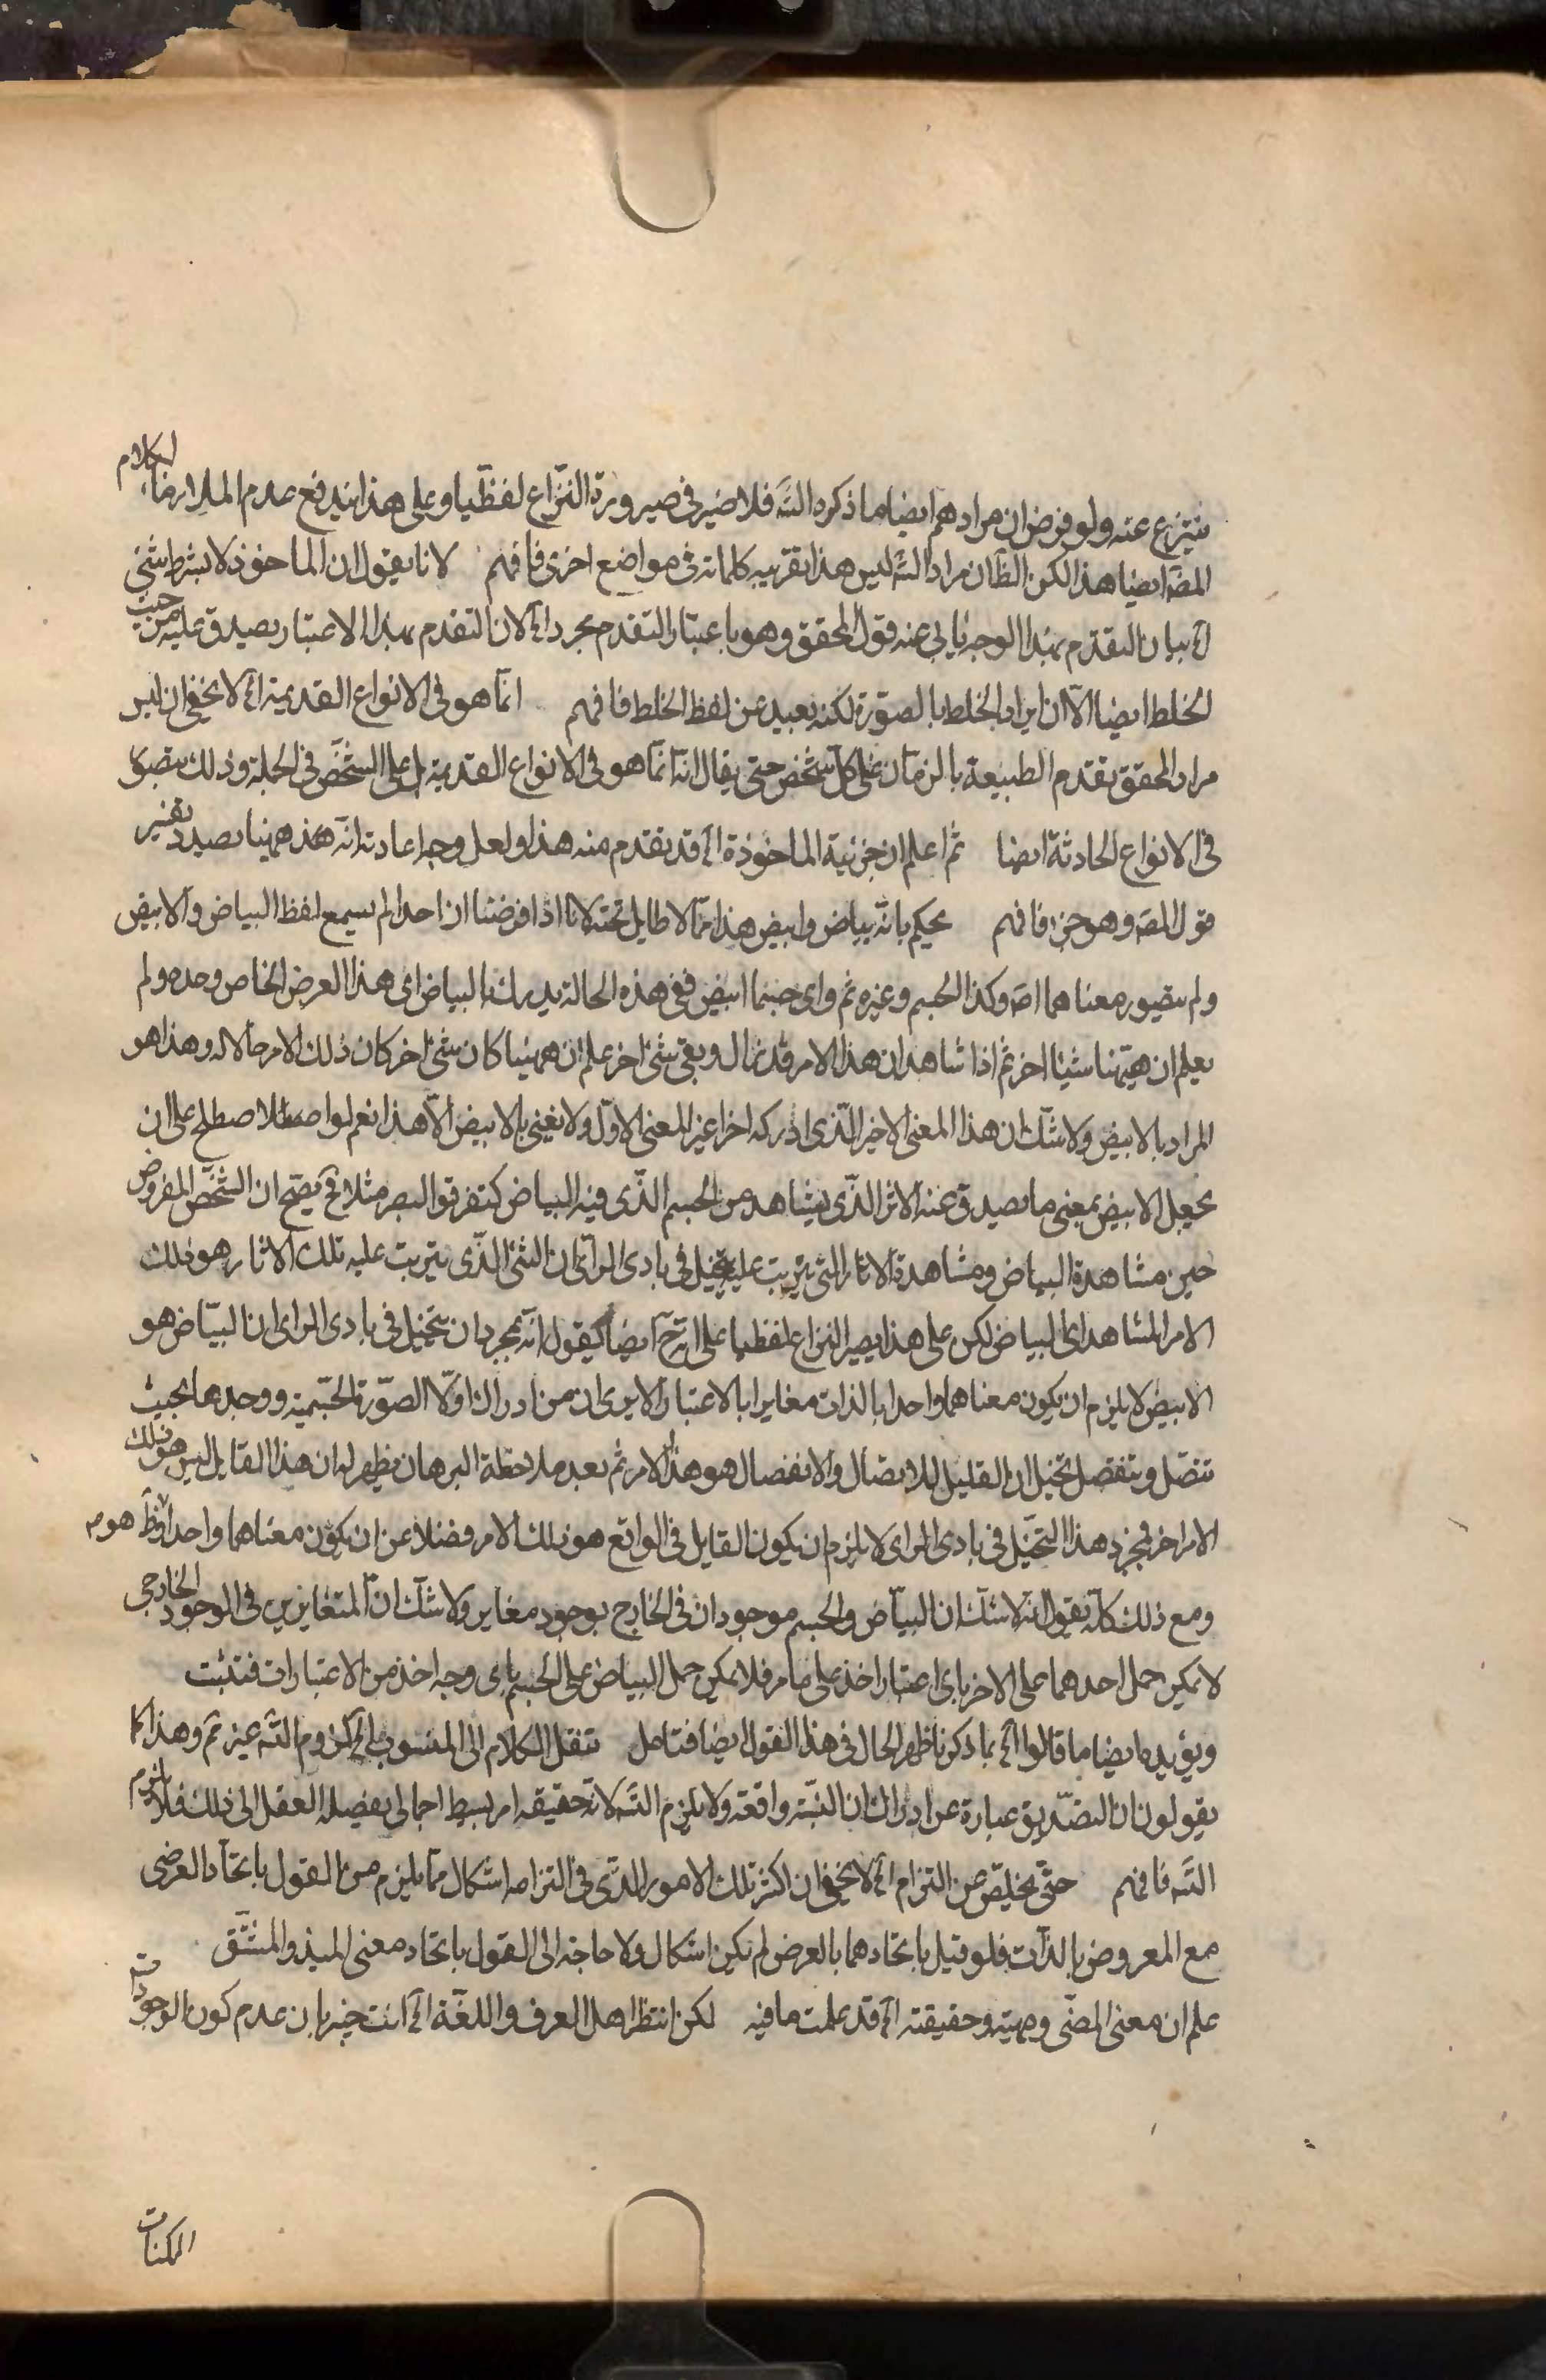 ينتزع عنه ولو فرض ان مرادهم ايضا ما ذكره الشه فلا ضير فى صيرورة النزاع لفظيا وعلى هذا يندفع عدم الكلام
المصه ايضا هذا لكن الظان مراد الشه ليس هذا بقرينه كلماته فى مواضع اخرى فافهم لانا نقول ان الماخوذ لا بشرط شئ
اه بيان التقدم بهذا الوجه يابى عنه قول المحقق وهو باعتبار التقدم مجرد اه لان التقدم بهذا الاعتبار يصدق عليه من حيث
الخلط ايضا الا ان ايراد الخلط بالصورة لكنه بعيد عن لفظ الخلط فافهم انما هو فى الانواع القديمة اه لا يخفى ان ليس
مراد المحقق تقدم الطبيعة بالزمان على كل شخص حتى يقال انه انما هو فى الانواع القديمة بل على الشخص فى الجملة وذلك يتصور
فى الانواع الحادثة ايضا ثم اعلم ان جزئية الماخوذة اه قد تقدم منه هذا ولعل وجه اعادته انه هذ ههنا بصدد تفسير
قول المصه وهو جزء فافهم يحكم بانه بياض وابيض هذا مما لا طايل تحته لانا اذا فرضنا ان احدا لم يسمع لفظ البياض والابيض
ولم يتصور معناهما اصه وكذا الجسم وغيره ثم راى جسما ابيض ففى هذه الحالة يدرك البياض اى هذا العرض الخاص وحده ولم
يعلم ان ههنا شيئا اخر ثم اذا شاهد ان هذا الامر قد زال وبقى شئ اخر علم ان ههنا كان شئ اخر كان ذلك الامر حالا له وهذا هو
المراد بالابيض ولا شك ان هذا المعنى الاخير الذى ادركه اخرا غير المعنى الاول ولا نعنى بالابيض الا هذا نعم لو اصطلح على ان
يجعل الابيض بمعنى ما يصدق عنه الاثر الذى يشاهد من الجسم الذى فيه البياض كتفرق البصر مثلا فح يصح ان الشخص المفروض
حين مشاهدة البياض ومشاهدة الاثار التى يترتب عليه يتخيل فى بادى الراى ان الشئ الذى يترتب عليه تلك الاثار هو ذلك
الامر المشاهد اى البياض لكن على هذا يصير النزاع لفظيا على انه ح ايضا نقول انه بمجرد ان يتخيل فى بادى الراى ان البياض هو
الابيض لا يلزم ان يكون معناهما واحدا بالذات مغايرا بالاعتبار الا يرى ان من ادرك اولا الصورة الجسمية ووجدها بحيث
تتصل وتنفصل تخيل ان القابل للاتصال والانفصال هو هذا الامر ثم بعد ملاحظة البرهان يظهر له ان هذا القايل ليس هو ذلك
الامر اخر فمجرد هذا التخيل فى بادى الراى لا يلزم ان يكون القابل فى الواقع هو ذلك الامر فضلا عن ان يكون معناهما واحدا
ومع ذلك كله نقول انه لا شك ان البياض والجسم موجودان فى الخارج بوجود مغاير ولا شك ان المتغايرين فى الوجود الخارجى
لا يمكن حمل احدهما على الاخر باى اعتبار اخذ على ما مر فلا يمكن حمل البياض على الجسم باى وجه اخذ من الاعتبارات فتثبت
ويؤيده ايضا ما قالوا اه بما ذكرنا ظهر الحال فى هذا القول ايضا فتامل تنقل الكلام الى المنسوب اليه الشه غير ثم وهذا كما
يقولون ان التصديق عبارة عن ادراك ان النسبة واقعة ولا يلزم الشه لانه حقيقه امر بسيط اجمالى يفصله العقل الى ذلك فلا يلزم
الشه فافهم حتى يخلص عن التزام اه لا يخفى ان اكثر تلك الامور الذى فى التزامه اشكال مما يلزم من القول باتحاد العرضى
مع المعروض بالذات فلو قيل باتحادهما بالعرض لم يكن اشكال ولا حاجة الى القول باتحاد معنى المبدء والمشتق
علم ان معنى المضى ومهيته وحقيقته اه قد علمت ما فيه لكن انظار اهل العرف واللغة اه انت خبير بان عدم كون الوجود
الممكنات